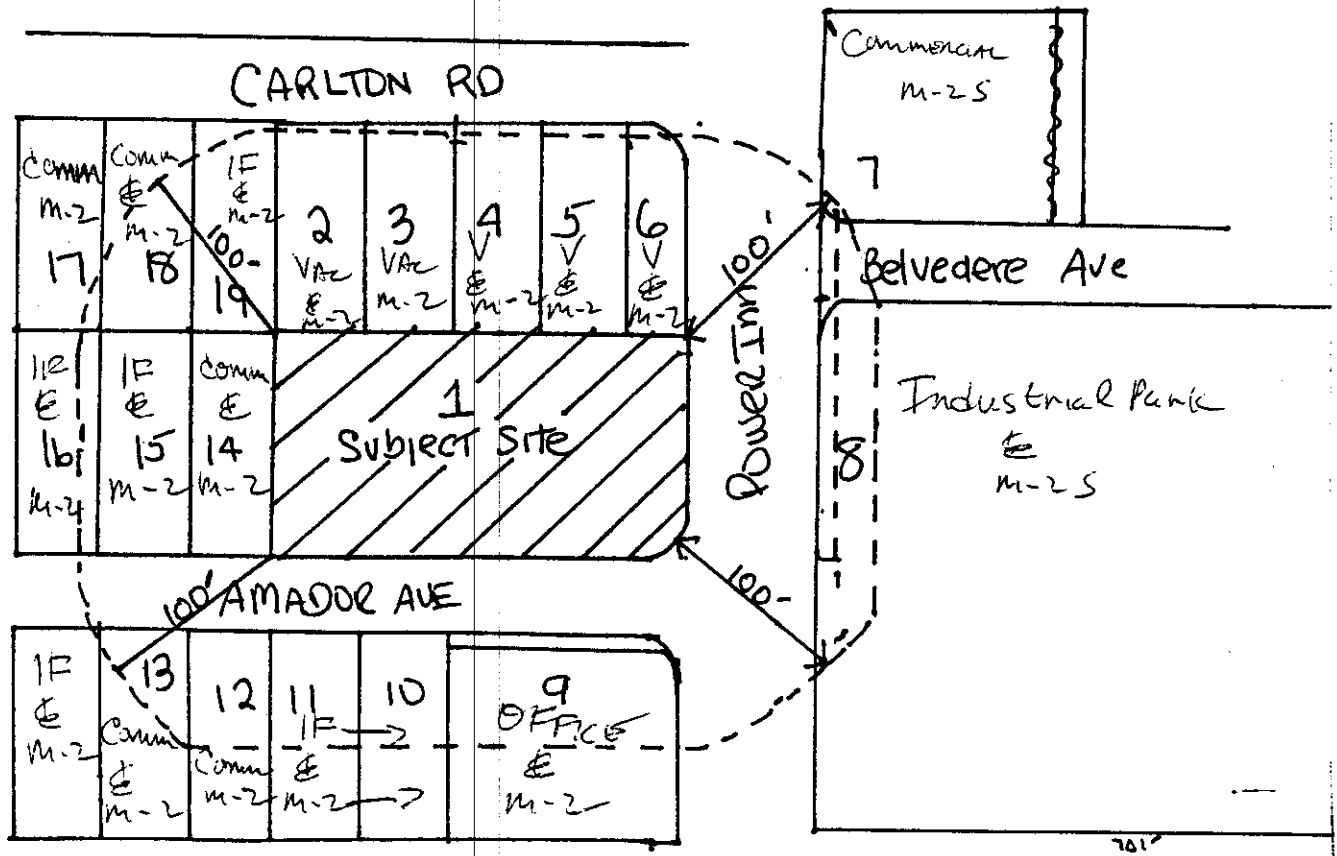 CARLTON RD
Commercial
M-2 S
7
Comm
M-2
17
Comm
&
M-2
18
1F
&
M-2
19
100-
2
VAC
&
M-2
3
VAC
M-2
4
V
&
M-2
5
V
&
M-2
6
V
&
M-2
100'-
Power Inn
Belvedere Ave
1F
&
16
M-2
1F
&
15
M-2
Comm
&
14
M-2
1
Subject Site
8
Industrial Park
&
M-2 S
100'
AMADOR AVE
100-
1F
&
M-2
13
Comm
&
M-2
12
Comm
M-2
11
1F
&
M-2
10
9
OFFICE
&
M-2
701'